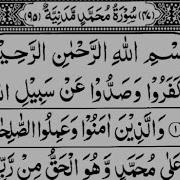 (٤٧) سُوْرَةُ مُحَمَّدٍ مَّدَنِيَّةٌ (٩٥)
بِسْمِ اللّٰهِ الرَّحْمٰنِ الرَّحِيْمِ
كَفَرُوْا وَصَدُّوْا عَنْ سَبِيْلِ
وَالَّذِيْنَ اٰمَنُوْا وَعَمِلُوا الصّٰلِحٰتِ
عَلٰى مُحَمَّدٍ وَّهُوَ الْحَقُّ مِنْ